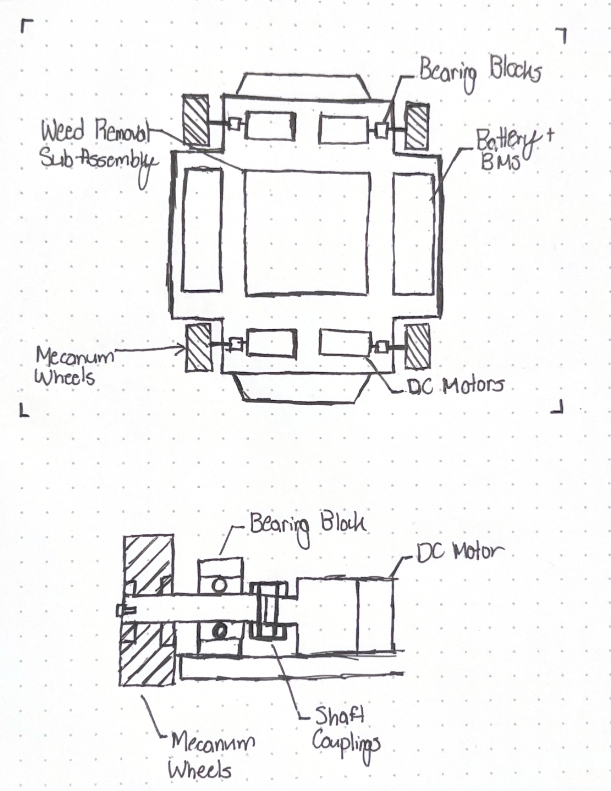 Bearing Blocks
Weed Removal
Sub Assembly
Battery +
BMS
Mecanum
Wheels
DC Motors
Bearing Block
DC Motor
Shaft
Couplings
Mecanum
Wheels